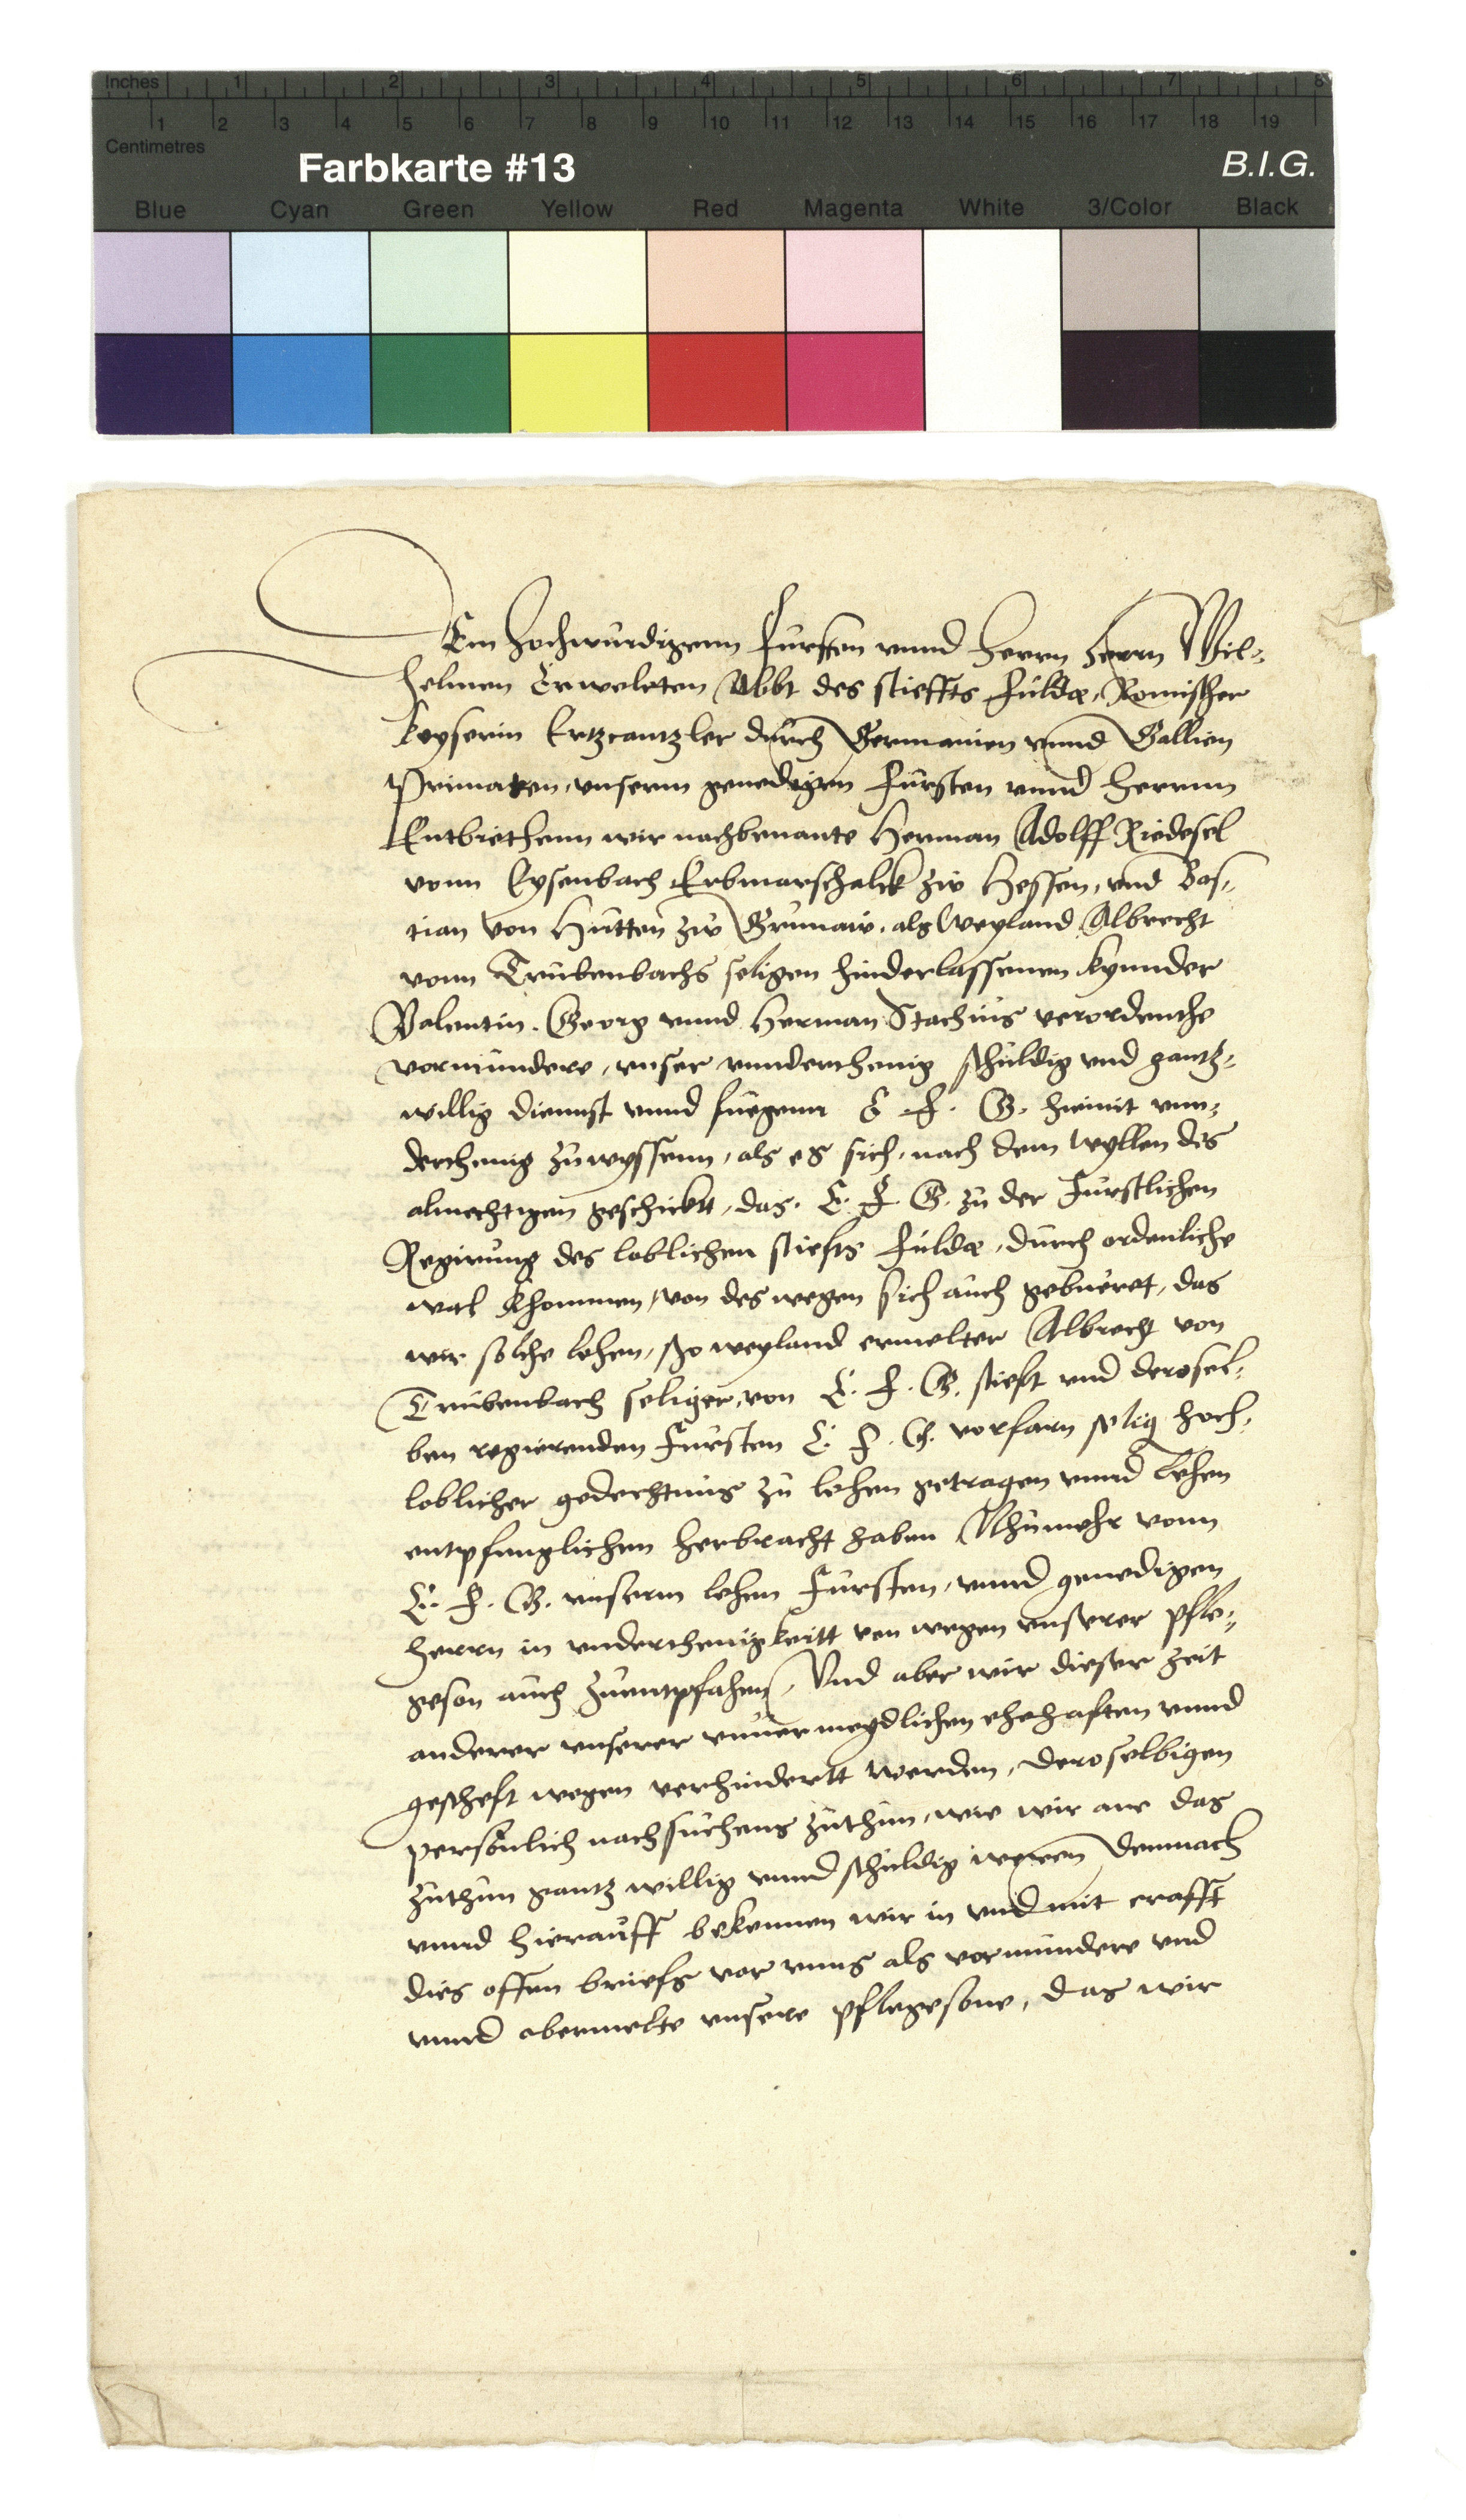 Inches 1 2 3 4 5 6 7 8
1 2 3 4 5 6 7 8 9 10 11 12 13 14 15 16 17 18 19
Centimetres
Farbkarte #13 B.I.G.
Blue Cyan Green Yellow Red Magenta White 3/Color Black
Dem hochwurdigenn fursten vnnd herrn herrn Wil-
helmen Erweleten Abbt des stieffts fuldæ, Romischer
keyserin Ertzcantzler durch Germanien vnnd Gallien
Primaten, vnserm genedigen fursten vnnd herrnn
Entbiethenn wir nachbenante Herman Adolff Riedesel
vonn Eysenbach Erbmarschalck zw Hessen, vnd Bas-
tian von Hutten zw Grunaw, als weyland Albrecht
vonn Trubenbachs seligen hinderlassenen kynnder
Valentin. Georg vnnd Herman Stachius verordenthe
vormundere, vnser vnnderthenig schuldig vnd gantz-
willig diennst vnnd fuegenn E. F. G. hiemit vnn-
derthenig zuwyssenn, als es sich, nach dem wyllen des
almechtigen geschicktt, das. E. F. G. zu der Furstlichen
Regirung des loblichen stiefts fuldæ, durch ordenliche
wal khommen, von des wegen sich auch geburet, das
wir solche lehen, so weyland ermelter Albrecht von
Trubenbach seliger, von E. F. G. stieft vnd derosel-
ben regierenden Fursten E. F. G. vorfarn selig hoch-
loblicher gedechtnus zu lehen getragen vnnd lehen
entpfenglichen herbracht haben Nhumehr vonn
E. F. G. vnserm lehen Fursten, vnnd genedigen
herrn in vnderthenigkeitt von wegen vnserer pfle-
geson auch zuentpfahen, Vnd aber wir dieser zeit
anderer vnserer vnuermeydlichen ehehaften vnnd
gescheft wegen verhindertt werden, deroselbigen
persönlich nachsuchens zuthun, wie wir ane das
zuthun gantz willig vnnd schuldig weren Demnach
vnnd hierauff bekennen wir in vnd mit crafft
dies offen briefs vor vnns als vormundere vnd
vnnd obermelte vnsere pflegesone, das wir